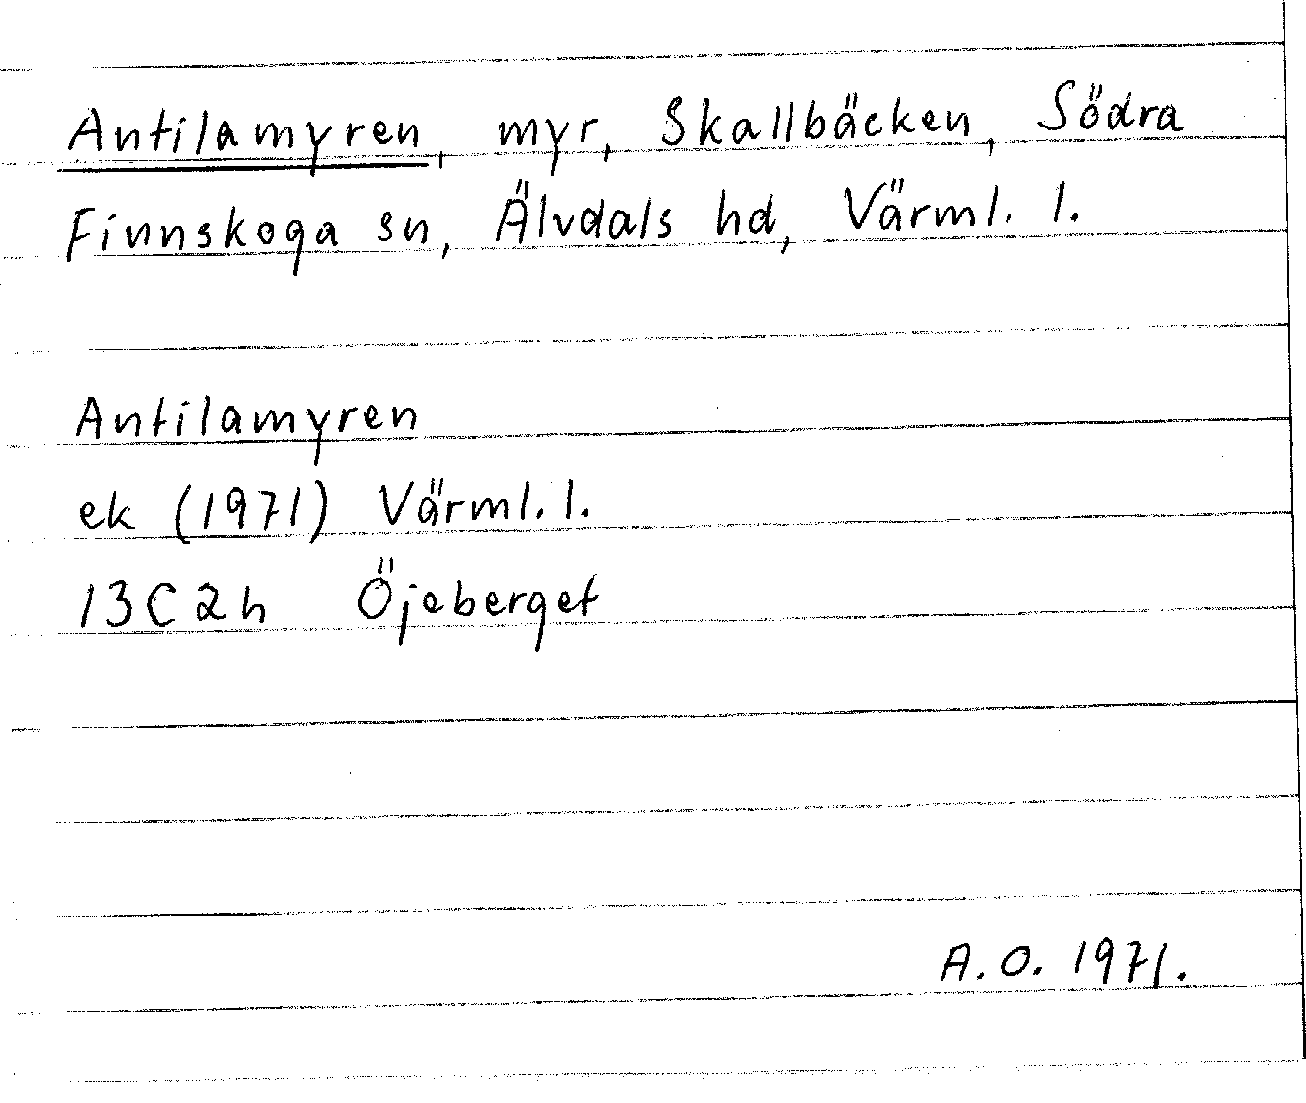 Antilamyren, myr, Skallbäcken, Södra
Finnskoga sn, Älvdals hd, Värml. l.
Antilamyren
ek (1971) Värml. l.
13C2h Öjeberget
A.O. 1971.